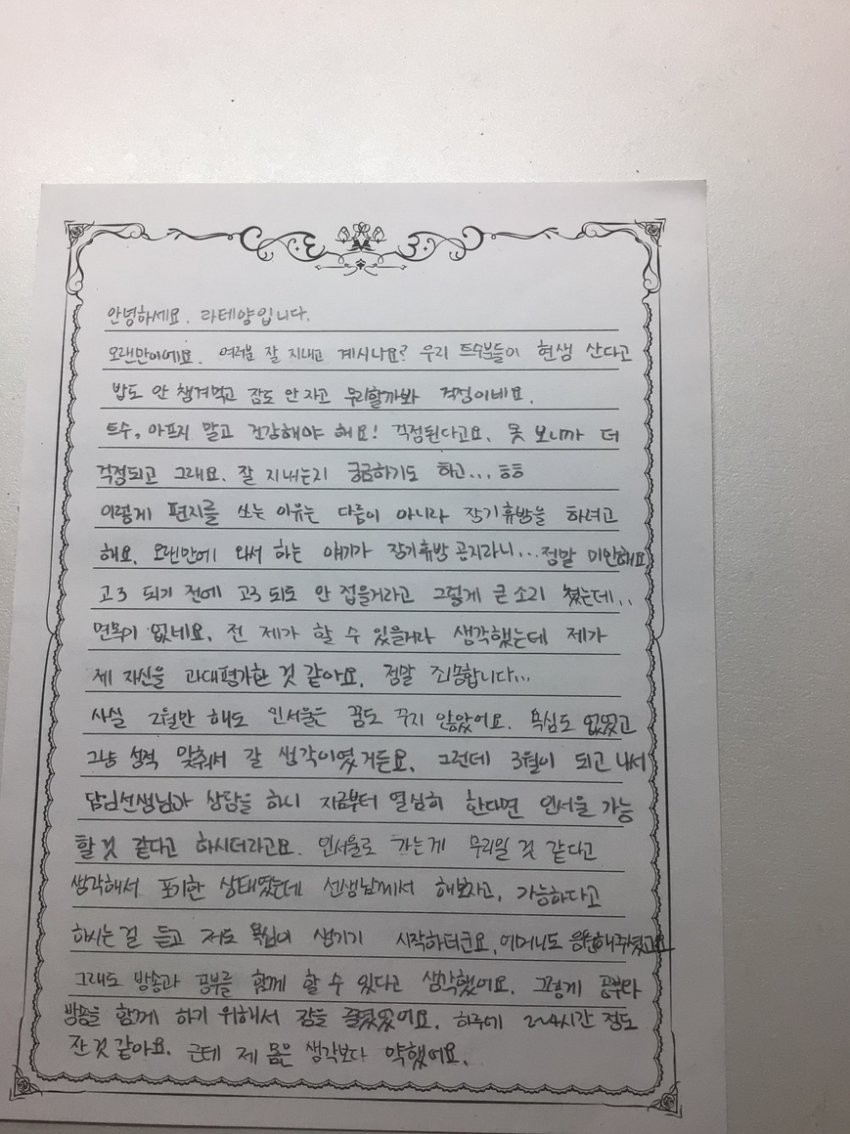 안녕하세요. 라테양입니다.
오랜만이에요. 여러분 잘 지내고 계시나요? 우리 트수분들이 현생 산다고
밥도 안 챙겨먹고 잠도 안 자고 무리할까봐 걱정이네요.
트수, 아프지 말고 건강해야 해요! 걱정된다고요. 못 보니까 더
걱정되고 그래요. 잘 지내는지 궁금하기도 하고... ㅎㅎ
이렇게 편지를 쓰는 이유는 다름이 아니라 장기휴방을 하려고
해요. 오랜만에 와서 하는 얘기가 장기휴방 공지라니... 정말 미안해요
고3 되기 전에 고3 되도 안 접을거라고 그렇게 큰소리 쳤는데..
면목이 없네요. 전 제가 할 수 있을거라 생각했는데 제가
제 자신을 과대평가한 것 같아요. 정말 죄송합니다...
사실 2월만 해도 인서울은 꿈도 꾸지 않았어요. 욕심도 없었고
그냥 성적 맞춰서 갈 생각이였거든요. 그런데 3월이 되고 나서
담임선생님과 상담을 하니 지금부터 열심히 한다면 인서울 가능
할 것 같다고 하시더라고요. 인서울로 가는게 무리일 것 같다고
생각해서 포기한 상태였는데 선생님께서 해보자고, 가능하다고
하시는 걸 듣고 저도 욕심이 생기기 시작하더군요. 어머니도 응원해주셨고요
그래도 방송과 공부를 함께 할 수 있다고 생각했어요. 그렇게 공부와
방송을 함께 하기 위해서 잠을 줄였었어요. 하루에 2~4시간 정도
잔 것 같아요. 근데 제 몸은 생각보다 약했어요.